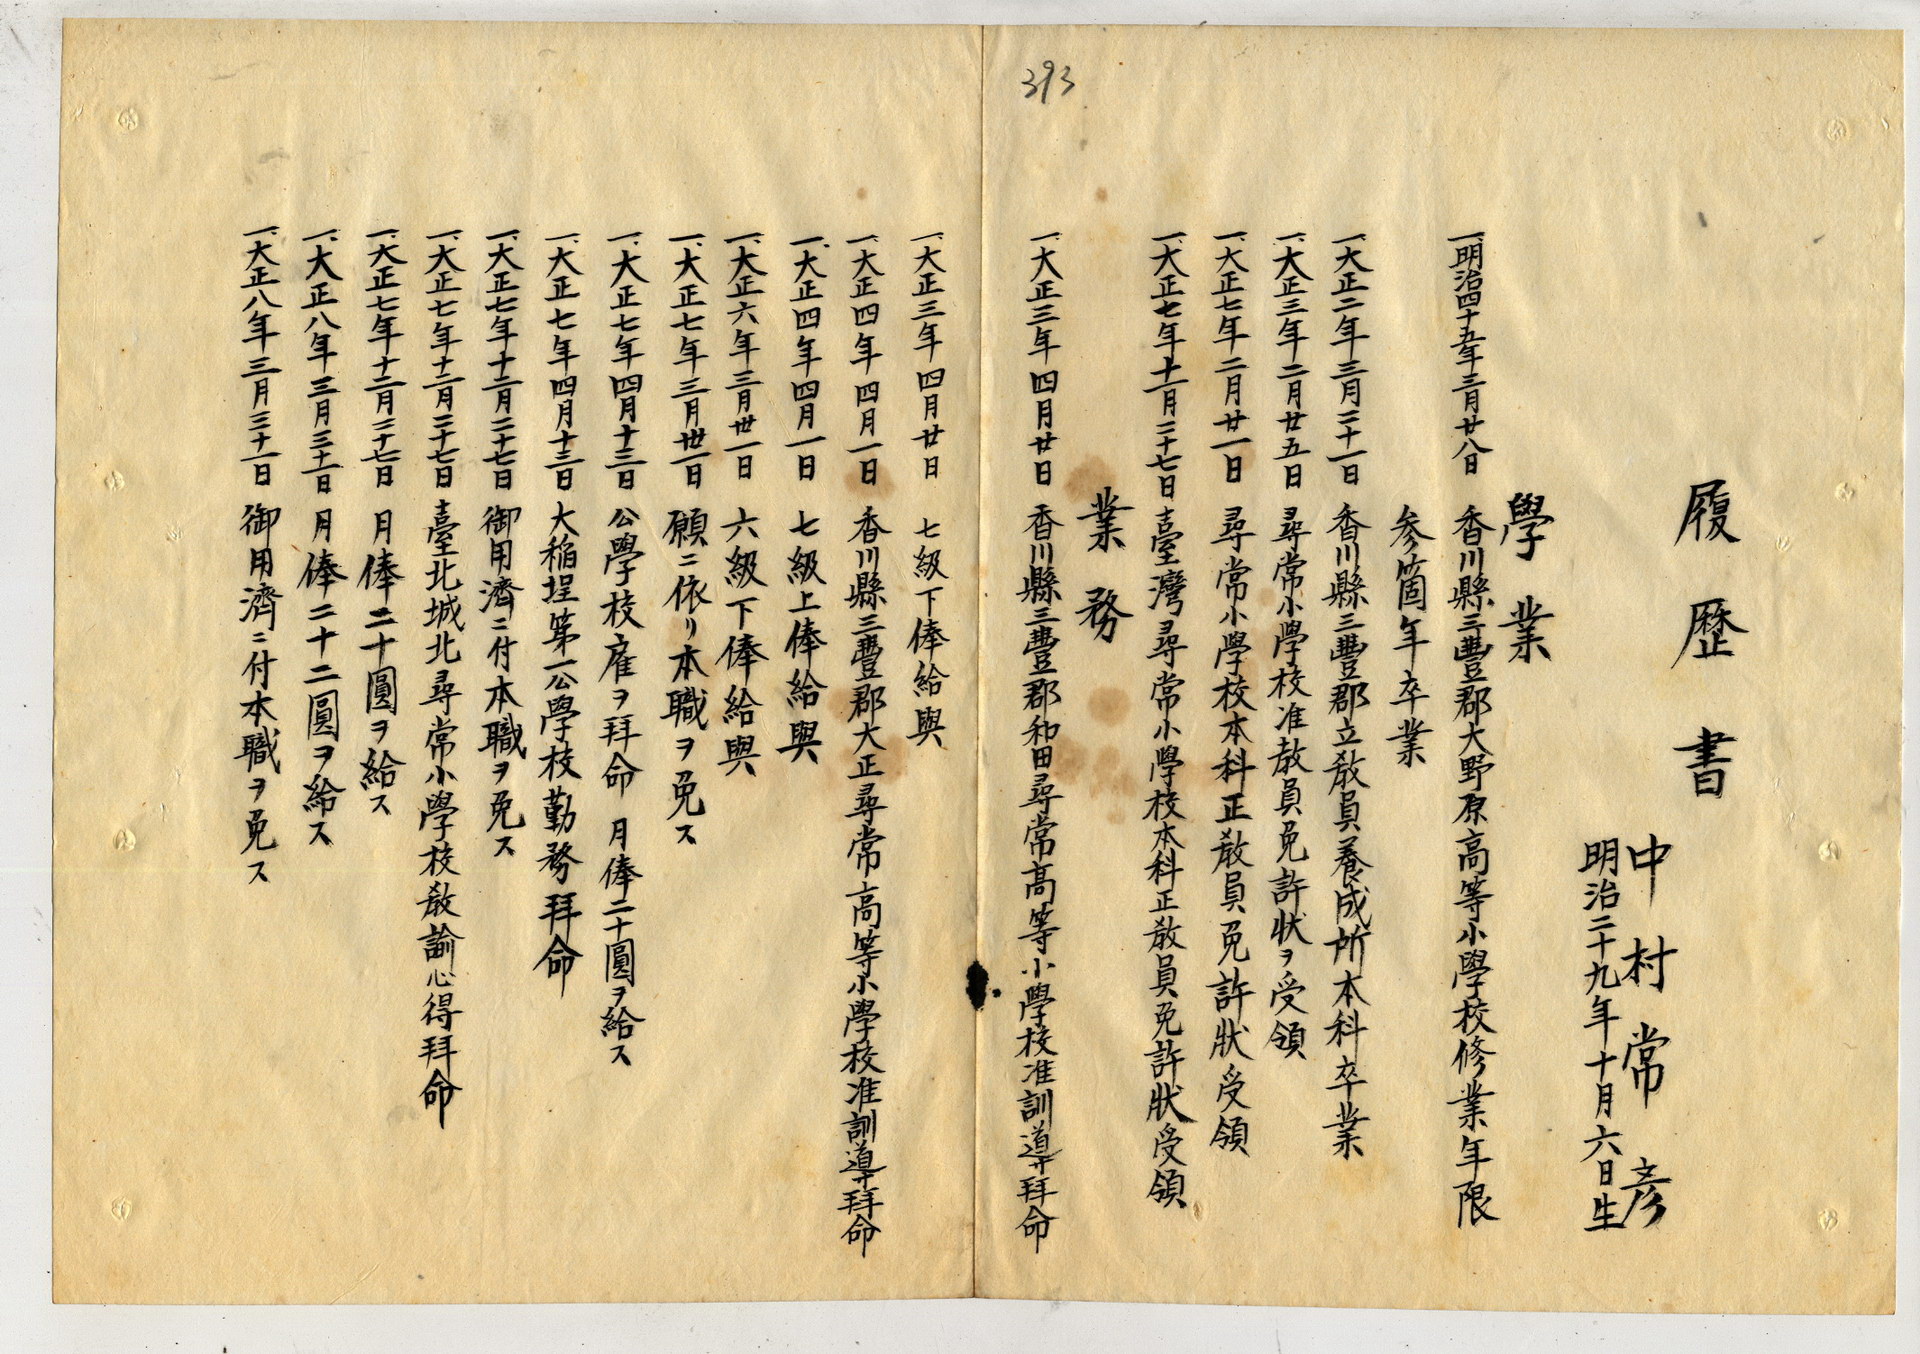 393
履歴書
中村常彦
明治二十九年十月六日生
學業
一、明治四十五年三月廿八日 香川縣三豐郡大野原高等小學校修業年限
参箇年卒業
一、大正二年三月三十一日 香川縣三豐郡立教員養成所本科卒業
一、大正三年二月廿五日 尋常小學校准教員免許狀ヲ受領
一、大正七年二月廿一日 尋常小學校本科正教員免許狀受領
一、大正七年十一月二十七日 臺灣尋常小學校本科正教員免許狀受領
業務
一、大正三年四月廿日 香川縣三豐郡和田尋常高等小學校准訓導拜命
一、大正三年四月廿日 七級下俸給與
一、大正四年四月一日 香川縣三豐郡大正尋常高等小學校准訓導拜命
一、大正四年四月一日 七級上俸給與
一、大正六年三月丗一日 六級下俸給與
一、大正七年三月丗一日 願ニ依リ本職ヲ免ス
一、大正七年四月十三日 公學校雇ヲ拜命 月俸二十圓ヲ給ス
一、大正七年四月十三日 大稲埕第一公學校勤務拜命
一、大正七年十二月二十七日 御用濟ニ付本職ヲ免ス
一、大正七年十二月二十七日 臺北城北尋常小學校教諭心得拜命
一、大正七年十二月二十七日 月俸二十圓ヲ給ス
一、大正八年三月三十一日 月俸二十二圓ヲ給ス
一、大正八年三月三十一日 御用濟ニ付本職ヲ免ス